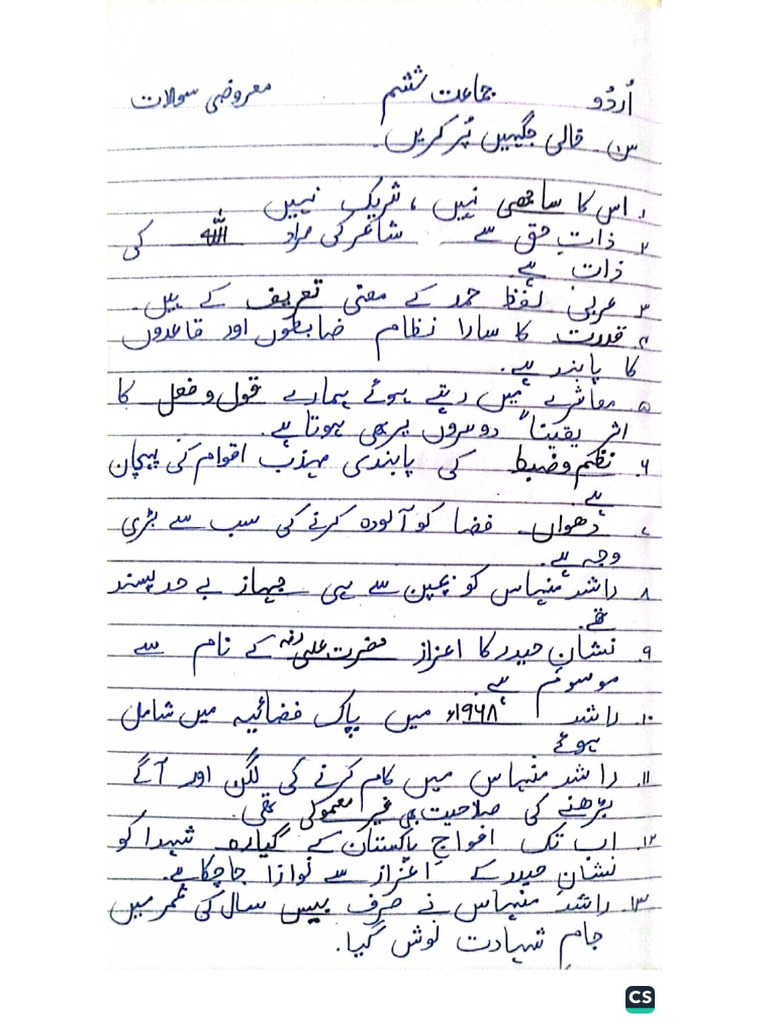 اُردُو جماعت ششم معروضی سوالات
س۱۔ خالی جگہیں پُر کریں۔
۱۔ اس کا ساجھی نہیں ، شریک نہیں
۲۔ ذاتِ حق سے شاعر کی مراد اللہ کی
ذات ہے۔
۳۔ عربی لفظ حمد کے معنی تعریف کے ہیں۔
۴۔ قدرت کا سارا نظام ضابطوں اور قاعدوں
کا پابند ہے۔
۵۔ معاشرے میں رہتے ہوئے ہمارے قول و فعل کا
اثر یقیناً دوسروں پر بھی ہوتا ہے۔
۶۔ نظم و ضبط کی پابندی مہذب اقوام کی پہچان
ہے۔
۷۔ دھواں۔ فضا کو آلودہ کرنے کی سب سے بڑی
وجہ ہے۔
۸۔ راشد منہاس کو بچپن سے ہی جہاز بے حد پسند
تھے۔
۹۔ نشانِ حیدر کا اعزاز حضرت علیؓ کے نام سے
موسوم ہے۔
۱۰۔ راشد ۱۹۶۸ء میں پاک فضائیہ میں شامل
ہوئے
۱۱۔ راشد منہاس میں کام کرنے کی لگن اور آگے
بڑھنے کی صلاحیت بھی غیر معمولی تھی۔
۱۲۔ اب تک افواجِ پاکستان کے گیارہ شہدا کو
نشانِ حیدر کے اعزاز سے نوازا جاچکا ہے۔
۱۳۔ راشد منہاس نے صرف بیس سال کی عُمر میں
جامِ شہادت نوش کیا۔
CS